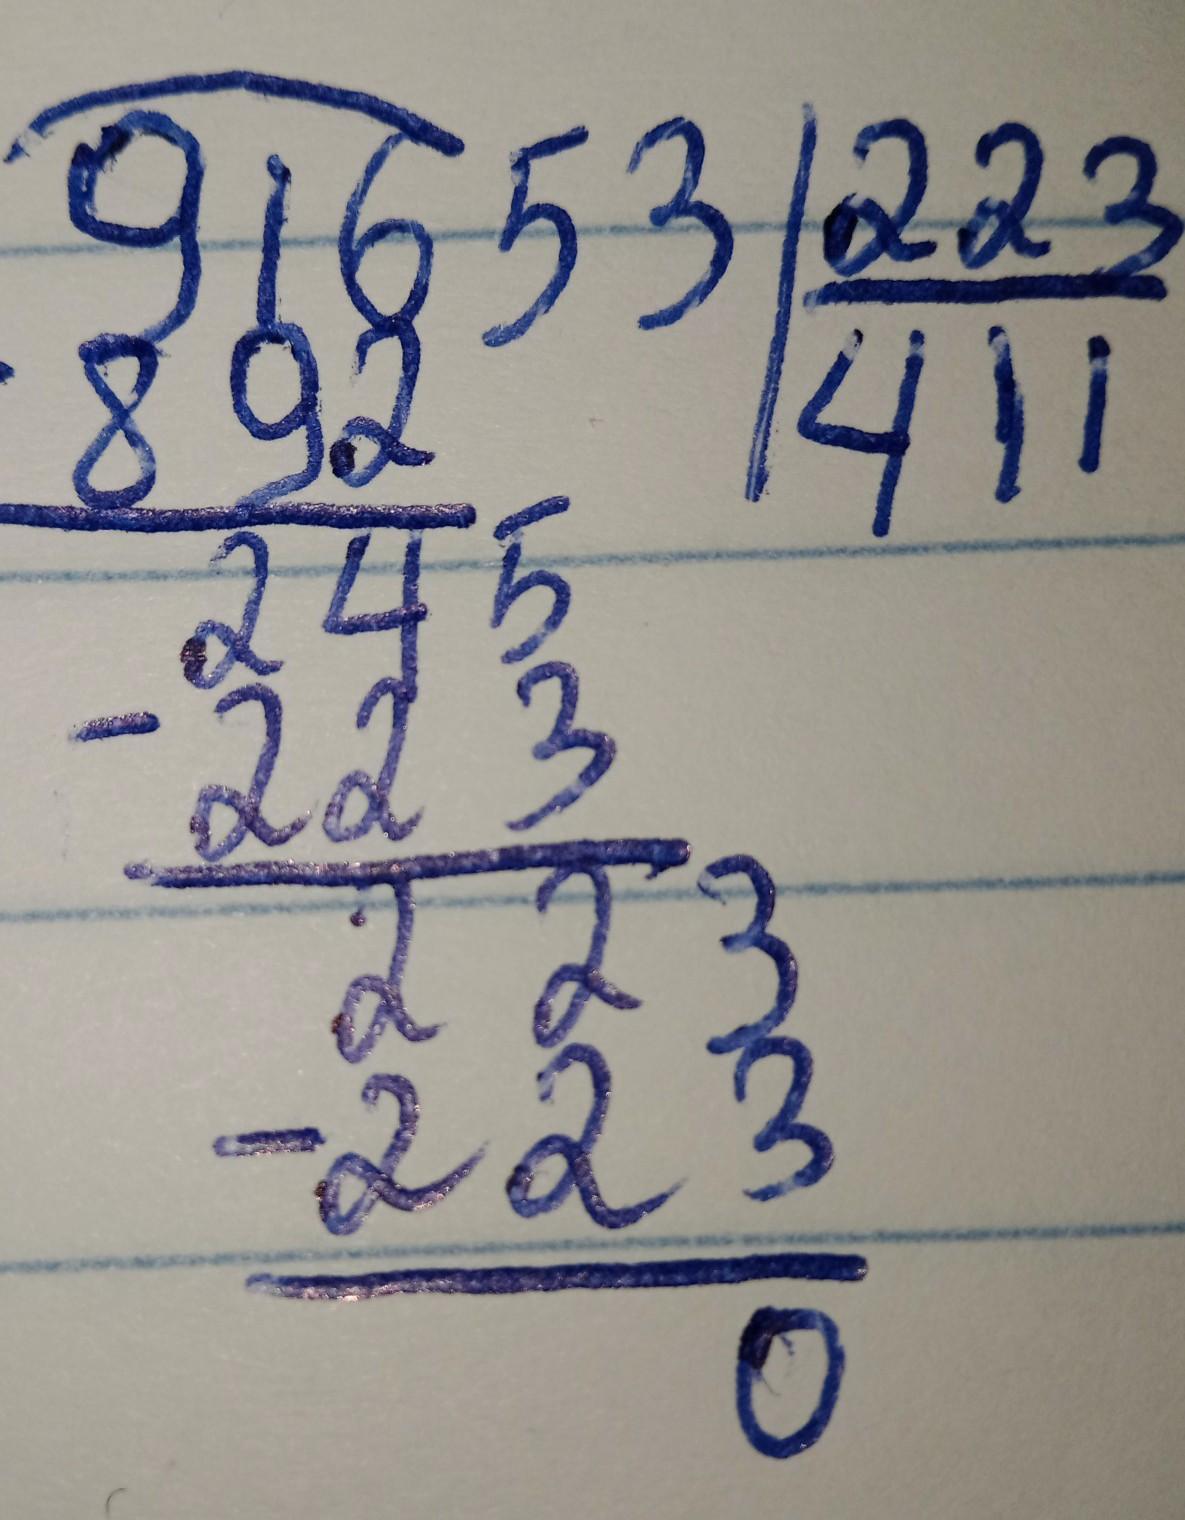 91653 223
- 892 411
245
- 223
223
- 223
0